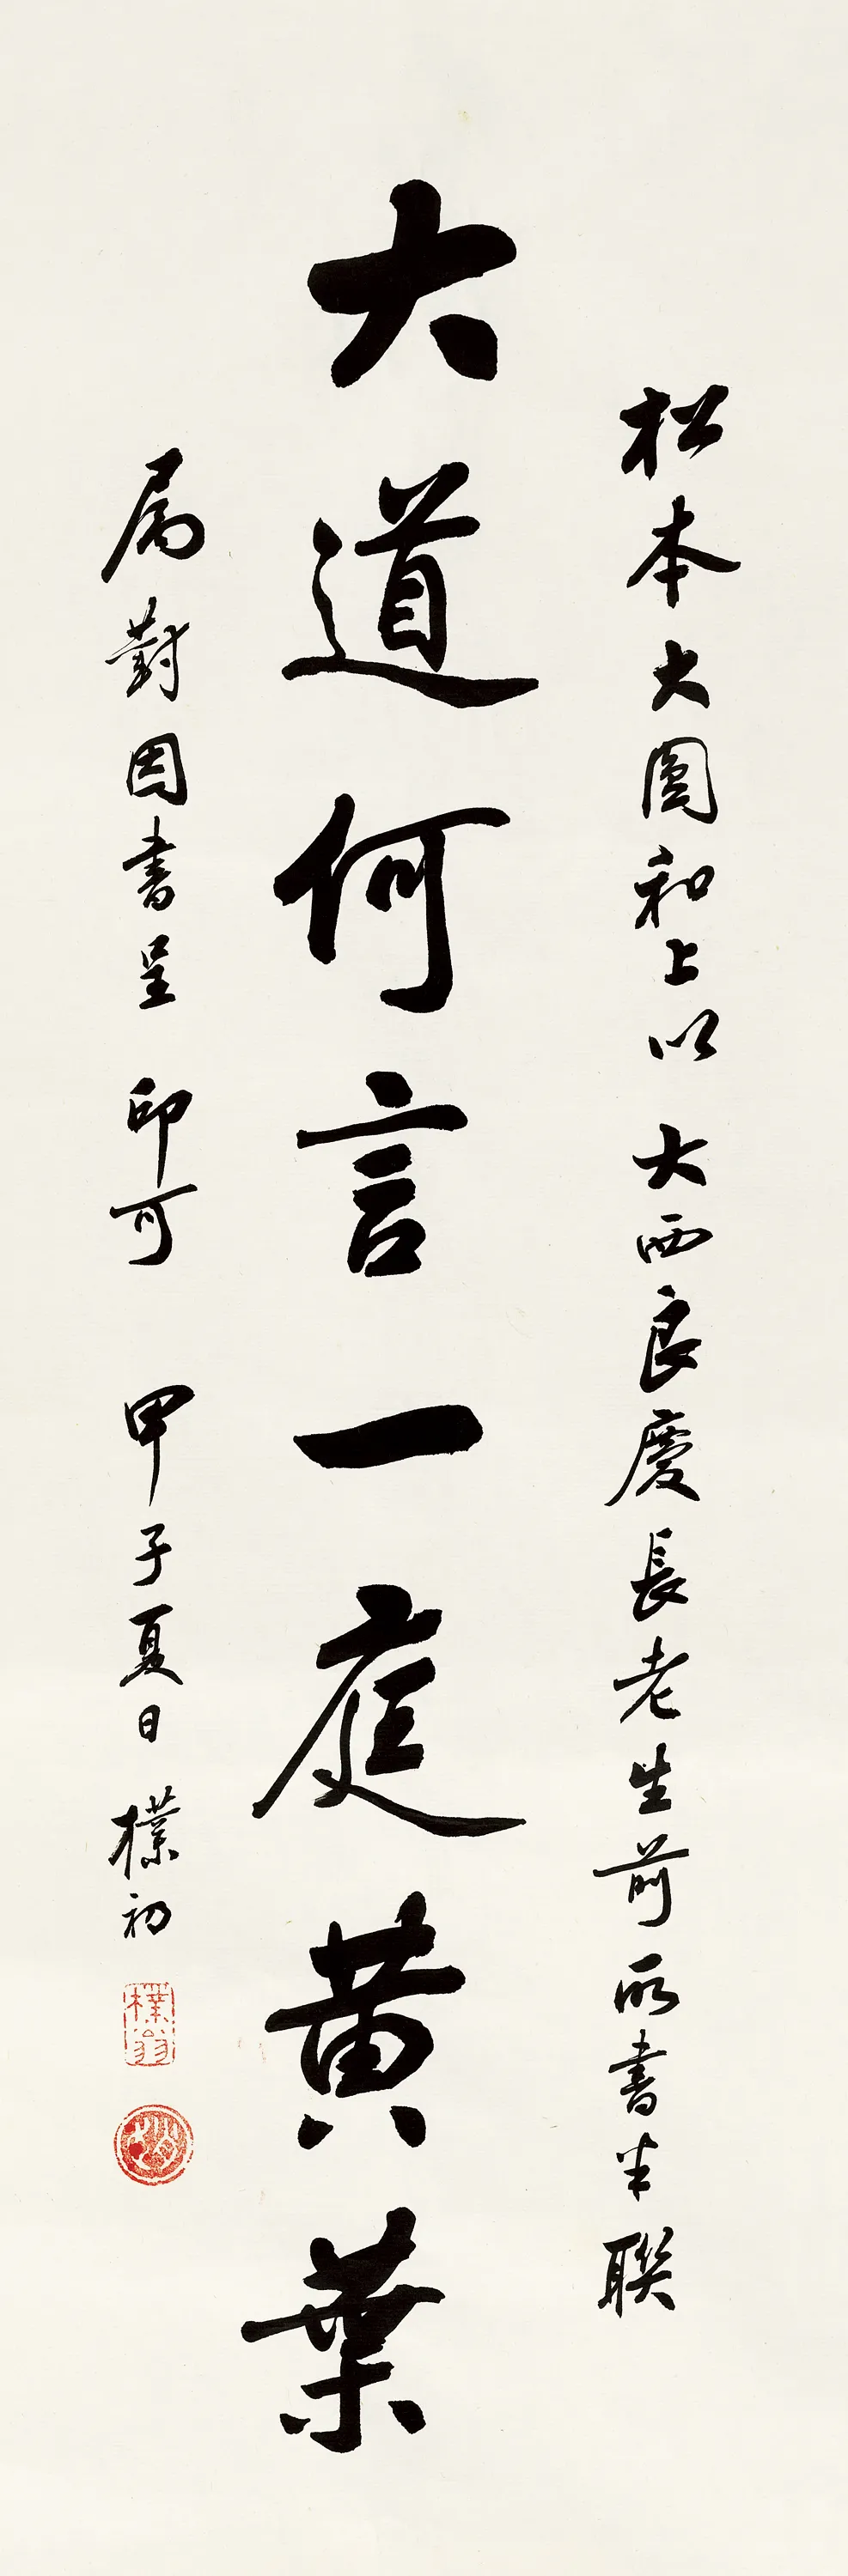 松本大圓和上以 大西良慶長老生前所書半聯
大道何言一庭黄葉
属對因書呈 印可 甲子夏日 樸初
樸翁
趙